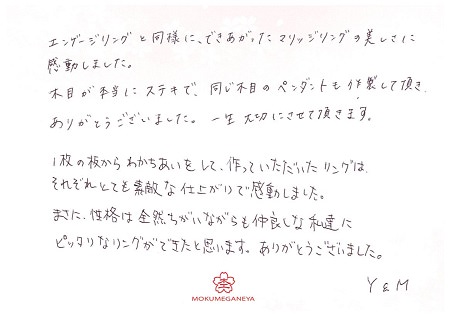 エンゲージリングと同様に、できあがったマリッジリングの美しさに
感動しました。
木目が本当にステキで、同じ木目のペンダントも作製して頂き、
ありがとうございました。一生大切にさせて頂きます。
1枚の板からわかちあいをして、作っていただいたリングは、
それぞれとても素敵な仕上がりで感動しました。
まさに、性格は全然ちがいながらも仲良しな私達に
ピッタリなリングができたと思います。ありがとうございました。
Y & M
MOKUMEGANEYA